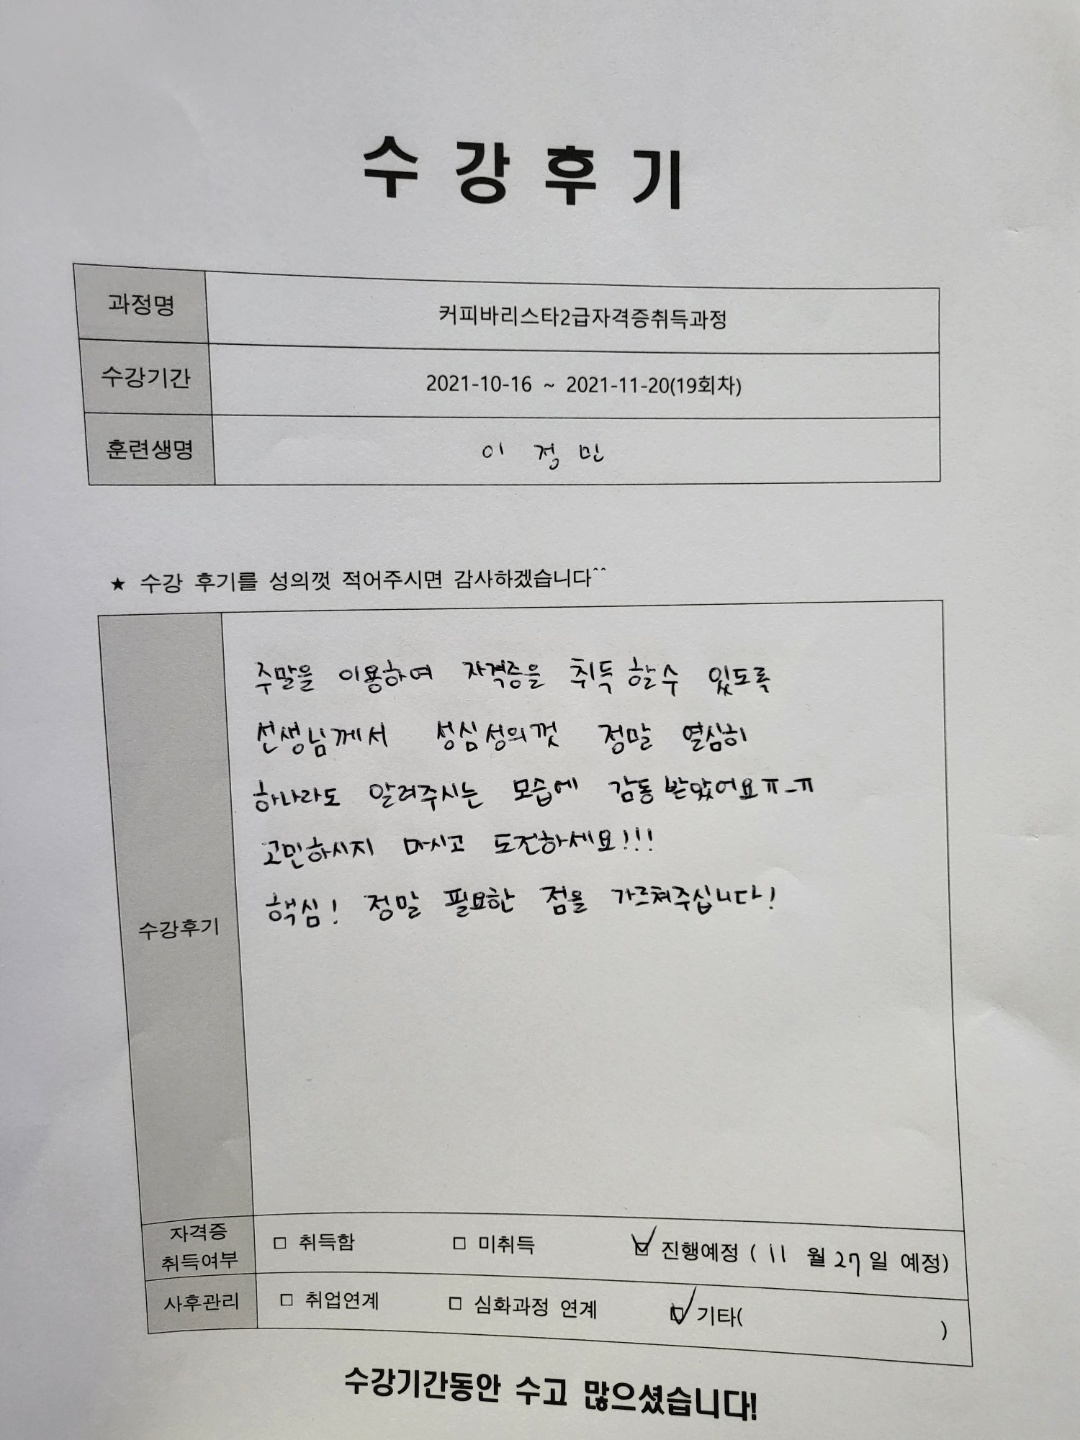 수강후기
과정명 커피바리스타2급자격증취득과정
수강기간 2021-10-16 ~ 2021-11-20(19회차)
훈련생명 이 정 민
★ 수강 후기를 성의껏 적어주시면 감사하겠습니다^^
수강후기
주말을 이용하여 자격증을 취득 할수 있도록
선생님께서 성심성의껏 정말 열심히
하나라도 알려주시는 모습에 감동 받았어요ㅠ_ㅠ
고민하시지 마시고 도전하세요!!!
핵심! 정말 필요한 점을 가르쳐주십니다!
자격증
취득여부 □ 취득함 □ 미취득 ☑ 진행예정 ( 11 월 27 일 예정)
사후관리 □ 취업연계 □ 심화과정 연계 ☑ 기타( )
수강기간동안 수고 많으셨습니다!